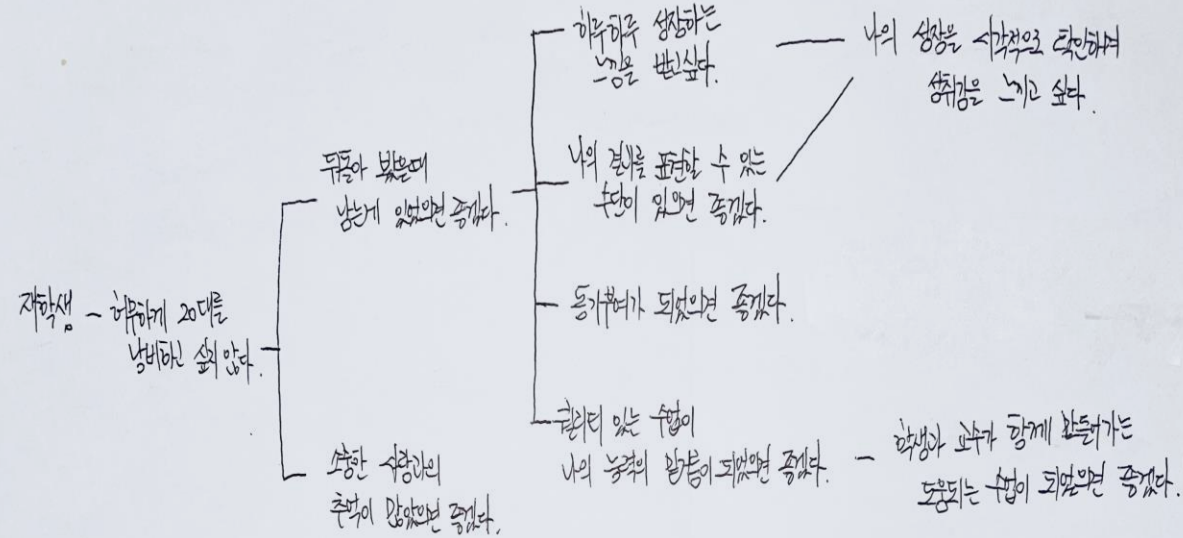 재학생 - 허무하게 20대를
낭비하고 싶지 않다.
뒤돌아 봤을때
남는게 있었으면 좋겠다.
소중한 사람과의
추억이 많았으면 좋겠다.
하루하루 성장하는
느낌을 받고싶다.
나의 결과를 표현할 수 있는
수단이 있으면 좋겠다.
동기부여가 되었으면 좋겠다.
퀄리티 있는 수업이
나의 능력의 밑거름이 되었으면 좋겠다.
나의 성장을 시각적으로 확인하며
성취감을 느끼고 싶다.
학생과 교수가 함께 만들어가는
도움되는 수업이 되었으면 좋겠다.